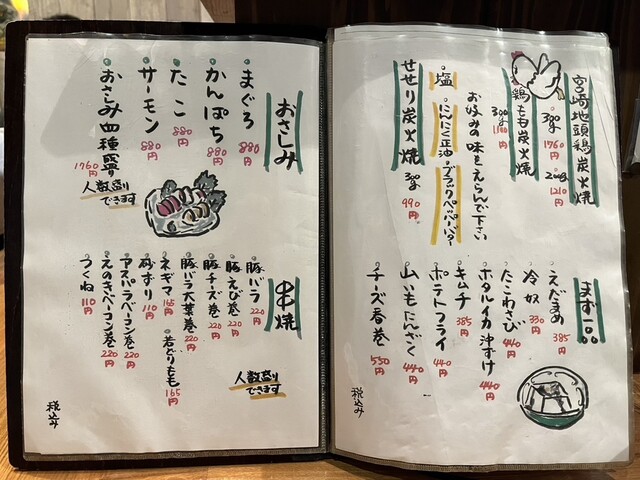 宮崎地頭鶏炭火焼
300g 1760円
200g 1210円
鶏もも炭火焼
300g 1100円
お好みの味をえらんで下さい
塩・にんにく正油・ブラックペッパーバター
せせり炭火焼
300g 990円
まず一品
えだまめ 385円
冷奴 330円
たこわさび 440円
ホタルイカ沖漬け 440円
キムチ 385円
ポテトフライ 440円
山いもたんざく 440円
チーズ春巻 550円
税込み
おさしみ
まぐろ 880円
かんぱち 880円
たこ 880円
サーモン 880円
おさしみ四種盛り 1760円
人数盛りできます
串焼
豚バラ 220円
豚えび巻 220円
豚チーズ巻 220円
豚バラ大葉巻 220円
ネギマ 165円
若どりもも 165円
砂ずり 110円
アスパラベーコン巻 220円
えのきベーコン巻 220円
つくね 110円
人数盛りできます
税込み